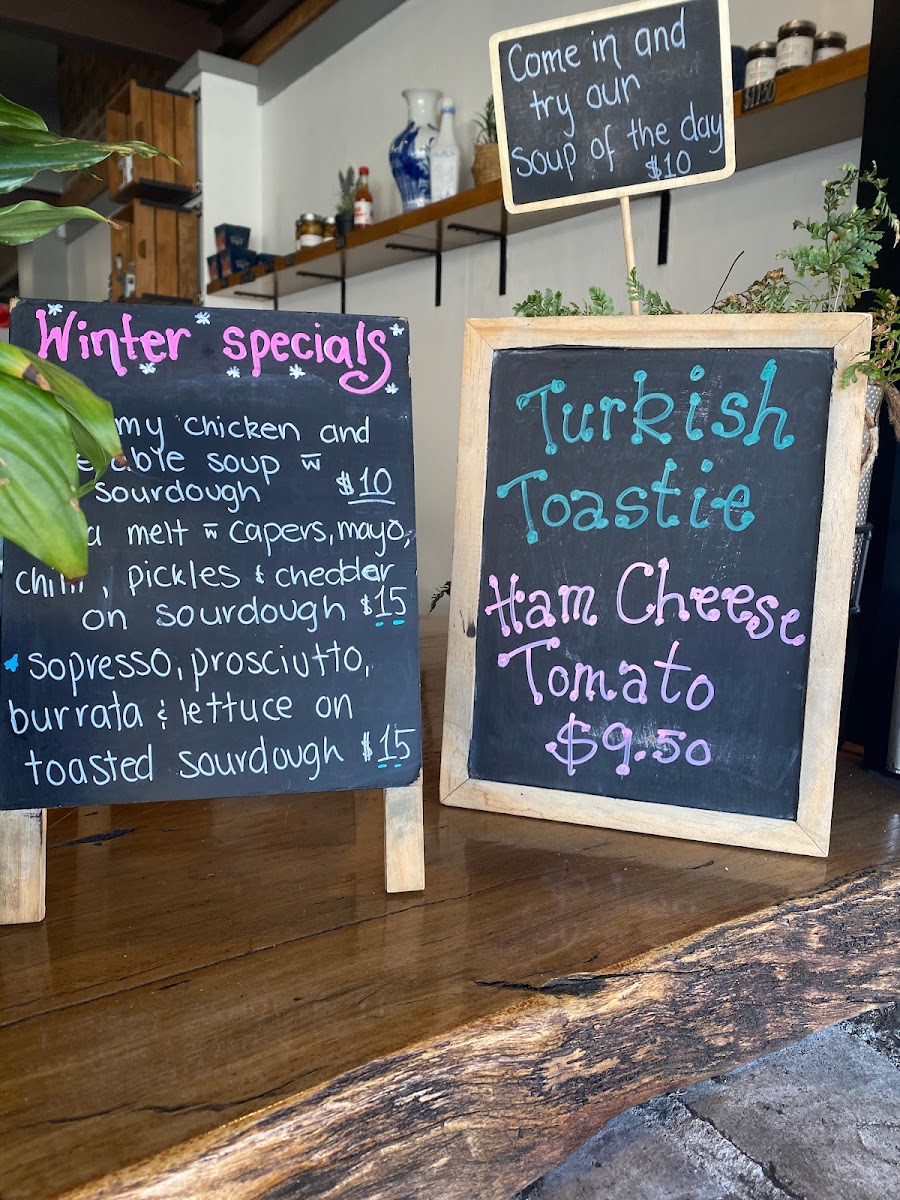 Come in and
try our
soup of the day
$10
Winter specials
my chicken and
able soup w̅
sourdough $10
a melt w̅ capers, mayo,
chilli, pickles & chedder
on sourdough $15
sopresso, prosciutto,
burrata & lettuce on
toasted sourdough $15
Turkish
Toastie
Ham Cheese
Tomato
$9.50